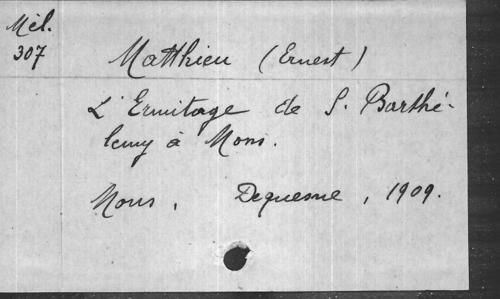 Mél.
307
Matthieu (Ernest)
L'Ermitage de S. Barthé-
lemy à Mons.
Mons, Dequesne, 1909.